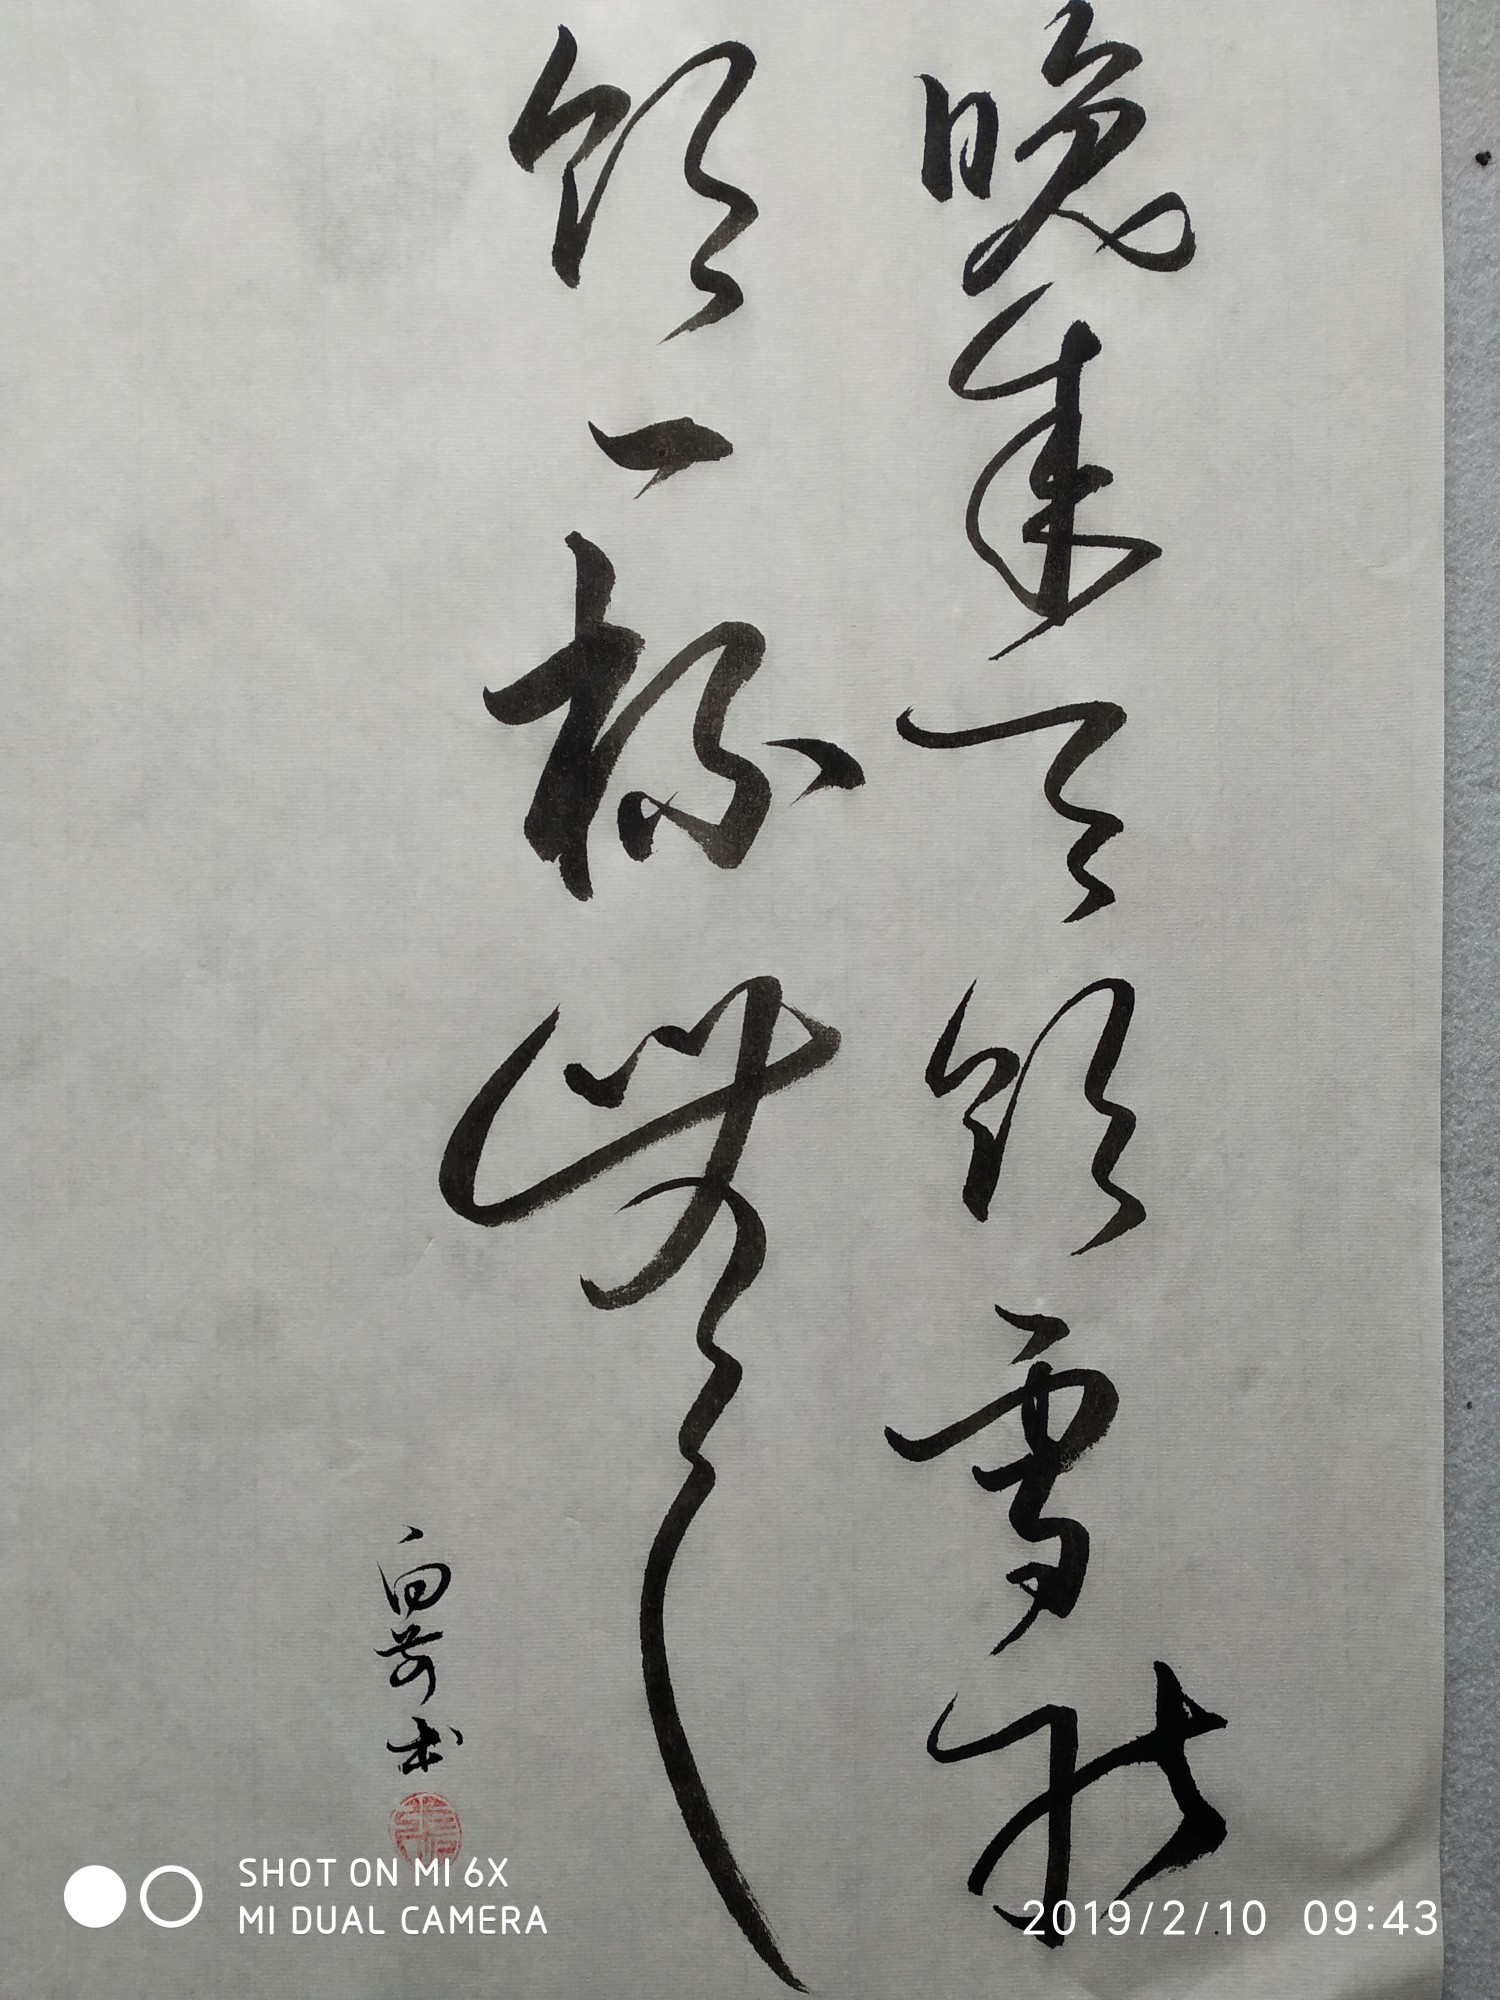 晚来天欲雪能
飲一杯無
向前书
SHOT ON MI 6X
MI DUAL CAMERA
2019/2/10 09:43